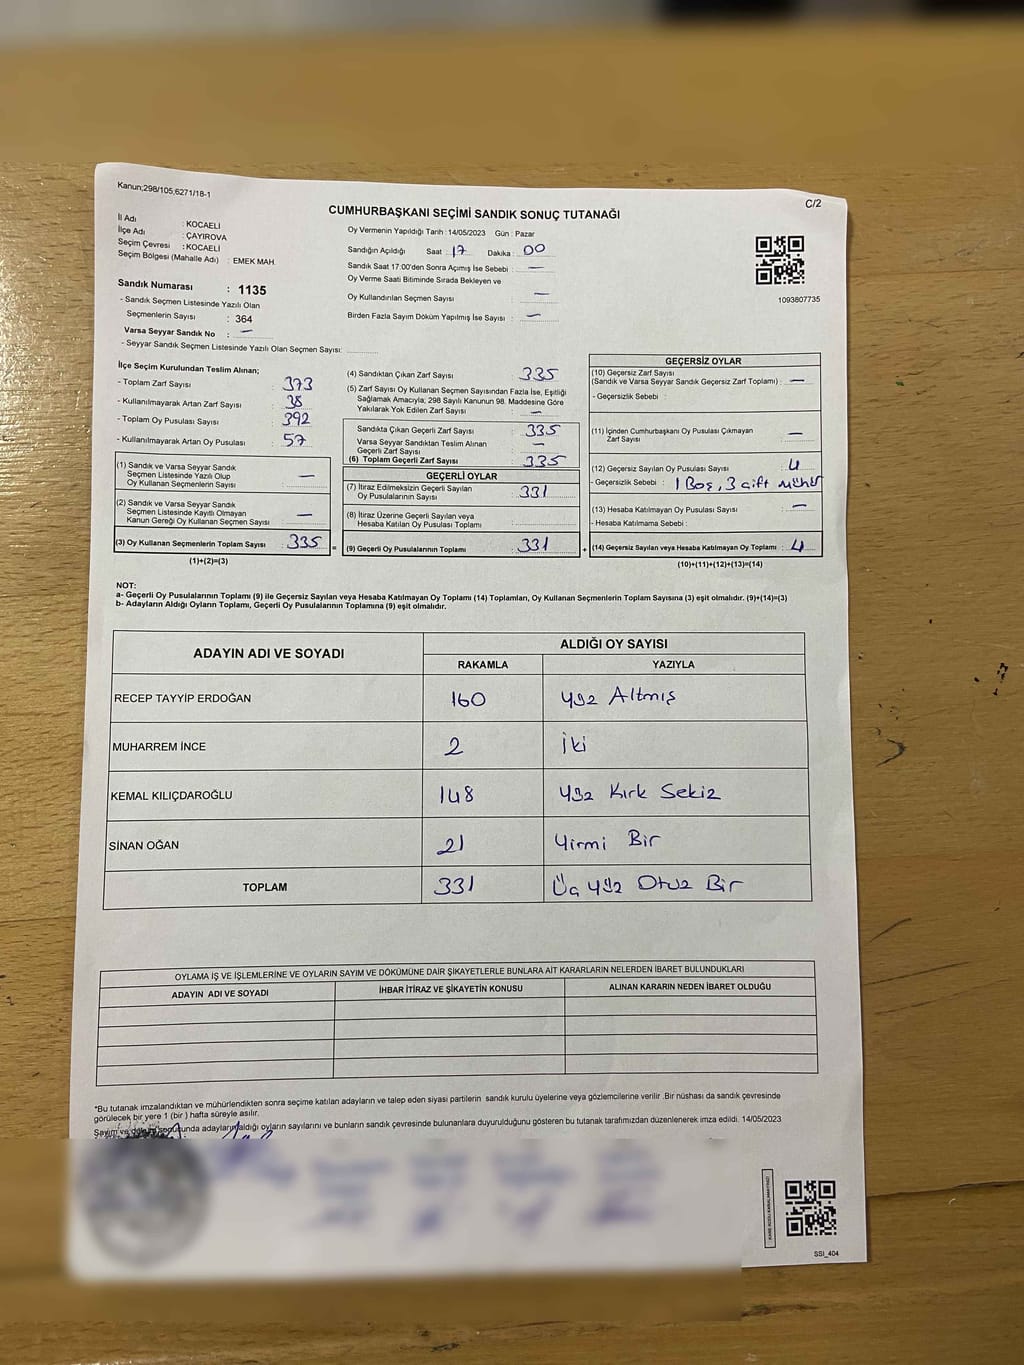 Kanun;298/105,6271/18-1
C/2
CUMHURBAŞKANI SEÇİMİ SANDIK SONUÇ TUTANAĞI
İl Adı : KOCAELİ
İlçe Adı : ÇAYIROVA
Seçim Çevresi : KOCAELİ
Seçim Bölgesi (Mahalle Adı) : EMEK MAH.
Sandık Numarası : 1135
- Sandık Seçmen Listesinde Yazılı Olan
Seçmenlerin Sayısı : 364
Varsa Seyyar Sandık No : —
- Seyyar Sandık Seçmen Listesinde Yazılı Olan Seçmen Sayısı:
Oy Vermenin Yapıldığı Tarih : 14/05/2023 Gün : Pazar
Sandığın Açıldığı Saat : 17 Dakika : 00
Sandık Saat 17:00'den Sonra Açımış İse Sebebi : —
Oy Verme Saati Bitiminde Sırada Bekleyen ve
Oy Kullandırılan Seçmen Sayısı : —
Birden Fazla Sayım Döküm Yapılmış İse Sayısı : —
1093807735
İlçe Seçim Kurulundan Teslim Alınan;
- Toplam Zarf Sayısı : 373
- Kullanılmayarak Artan Zarf Sayısı : 38
- Toplam Oy Pusulası Sayısı : 392
- Kullanılmayarak Artan Oy Pusulası : 57
(1) Sandık ve Varsa Seyyar Sandık
Seçmen Listesinde Yazılı Olup
Oy Kullanan Seçmenlerin Sayısı : —
(2) Sandık ve Varsa Seyyar Sandık
Seçmen Listesinde Kayıtlı Olmayan
Kanun Gereği Oy Kullanan Seçmen Sayısı : —
(3) Oy Kullanan Seçmenlerin Toplam Sayısı : 335 =
(1)+(2)=(3)
(4) Sandıktan Çıkan Zarf Sayısı : 335
(5) Zarf Sayısı Oy Kullanan Seçmen Sayısından Fazla İse, Eşitliği
Sağlamak Amacıyla, 298 Sayılı Kanunun 98. Maddesine Göre
Yakılarak Yok Edilen Zarf Sayısı : —
Sandıkta Çıkan Geçerli Zarf Sayısı : 335
Varsa Seyyar Sandıktan Teslim Alınan
Geçerli Zarf Sayısı : —
(6) Toplam Geçerli Zarf Sayısı : 335
GEÇERLİ OYLAR
(7) İtiraz Edilmeksizin Geçerli Sayılan
Oy Pusulalarının Sayısı : 331
(8) İtiraz Üzerine Geçerli Sayılan veya
Hesaba Katılan Oy Pusulası Toplamı :
(9) Geçerli Oy Pusulalarının Toplamı : 331 +
GEÇERSİZ OYLAR
(10) Geçersiz Zarf Sayısı
(Sandık ve Varsa Seyyar Sandık Geçersiz Zarf Toplamı) : —
- Geçersizlik Sebebi :
(11) İçinden Cumhurbaşkanı Oy Pusulası Çıkmayan
Zarf Sayısı : —
(12) Geçersiz Sayılan Oy Pusulası Sayısı : 4
- Geçersizlik Sebebi : 1 Boş, 3 çift mühür
(13) Hesaba Katılmayan Oy Pusulası Sayısı : —
- Hesaba Katılmama Sebebi :
(14) Geçersiz Sayılan veya Hesaba Katılmayan Oy Toplamı : 4
(10)+(11)+(12)+(13)=(14)
NOT:
a- Geçerli Oy Pusulalarının Toplamı (9) ile Geçersiz Sayılan veya Hesaba Katılmayan Oy Toplamı (14) Toplamları, Oy Kullanan Seçmenlerin Toplam Sayısına (3) eşit olmalıdır. (9)+(14)=(3)
b- Adayların Aldığı Oyların Toplamı, Geçerli Oy Pusulalarının Toplamına (9) eşit olmalıdır.
ADAYIN ADI VE SOYADI ALDIĞI OY SAYISI
RAKAMLA YAZIYLA
RECEP TAYYİP ERDOĞAN 160 Yüz Altmış
MUHARREM İNCE 2 İki
KEMAL KILIÇDAROĞLU 148 Yüz Kırk Sekiz
SİNAN OĞAN 21 Yirmi Bir
TOPLAM 331 Üç Yüz Otuz Bir
OYLAMA İŞ VE İŞLEMLERİNE VE OYLARIN SAYIM VE DÖKÜMÜNE DAİR ŞİKAYETLERLE BUNLARA AİT KARARLARIN NELERDEN İBARET BULUNDUKLARI
ADAYIN ADI VE SOYADI İHBAR İTİRAZ VE ŞİKAYETİN KONUSU ALINAN KARARIN NEDEN İBARET OLDUĞU
*Bu tutanak imzalandıktan ve mühürlendikten sonra seçime katılan adayların ve talep eden siyasi partilerin sandık kurulu üyelerine veya gözlemcilerine verilir .Bir nüshası da sandık çevresinde
görülecek bir yere 1 (bir ) hafta süreyle asılır.
Sayım ve döküm sonucunda adayların aldığı oyların sayılarını ve bunların sandık çevresinde bulunanlara duyurulduğunu gösteren bu tutanak tarafımızdan düzenlenerek imza edildi. 14/05/2023
SSİ_404